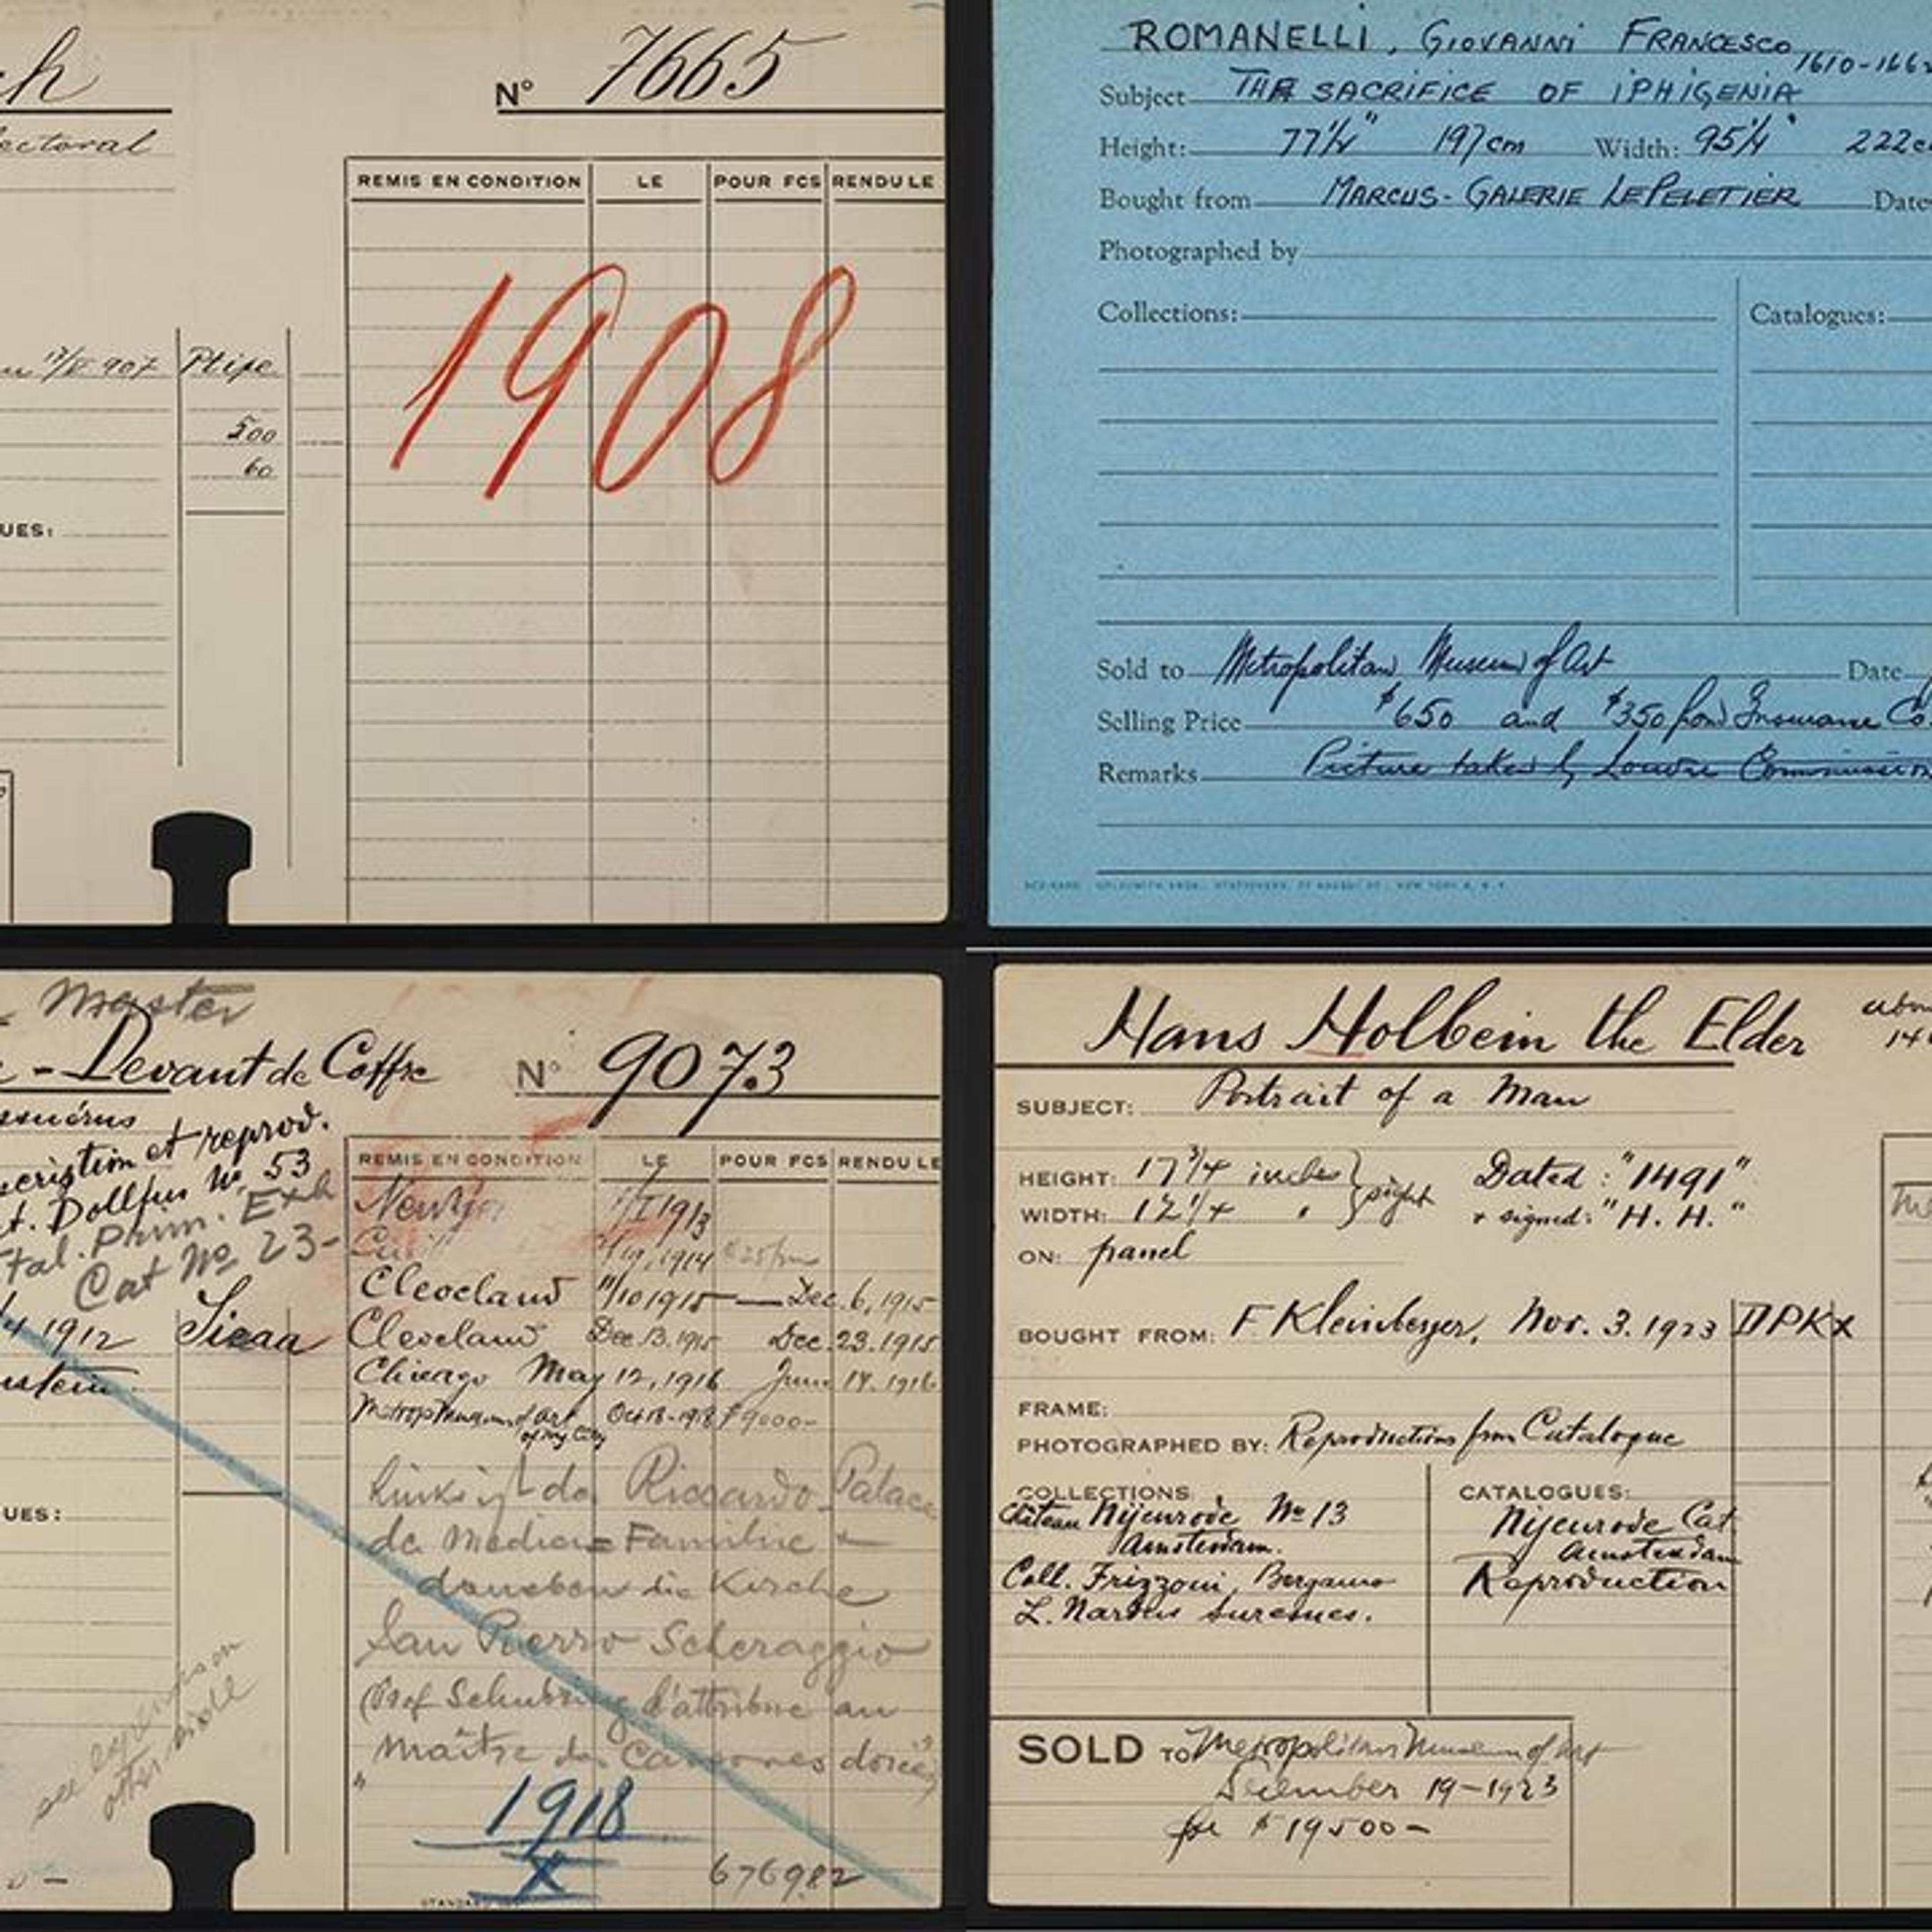 h
Nº 7665
ectoral
REMIS EN CONDITION LE POUR FCS RENDU LE
1908
17/V 907 Ptipe
500
60
UES:
ROMANELLI, GIOVANNI FRANCESCO 1610-1662
Subject THE SACRIFICE OF IPHIGENIA
Height: 77 1/2" 197cm Width: 95 1/4" 222c
Bought from MARCUS - GALERIE LEPELETIER Date
Photographed by
Collections: Catalogues:
Sold to Metropolitan Museum of Art Date
Selling Price $650 and $350 from Insurance Co.
Remarks Picture taken by Louvre Commission
Master
- Devant de Coffre Nº 9073
ssuérus
scription et reprod.
t. Dollfus Nº 53
Ital. Prim. Exh
Cat Nº 23-
REMIS EN CONDITION LE POUR FCS RENDU LE
1/I 1913
1914
Cleveland 11/10 1915 — Dec. 6, 1915
1912 Cleveland Dec. 13. 1915 Dec. 23. 1915
stein Chicago May 12, 1916 June 14. 1916
Metrop Museum of Art Oct 18-1918 $9000-
of NY City
links ist der Riccardo-Palace
der Medici=Familie +
daneben die Kirche
San Pierro Scheraggio
(Prof Schubring l'attribue au
Maître des Cassones dorés)
UES:
see expenses on
other side
1918
X
676982
Hans Holbein the Elder
SUBJECT: Portrait of a Man
HEIGHT: 17 3/4 inches } sight Dated: "1491"
WIDTH: 12 1/4 " + signed: "H. H."
ON: panel
BOUGHT FROM: F Kleinberger, Nov. 3. 1923 DPKX
FRAME:
PHOTOGRAPHED BY: Reproductions from Catalogue
COLLECTIONS: CATALOGUES:
Château Nijenrode Nº 13
Amsterdam.
Coll. Frizzoni, Bergamo
L. Nardus Suresnes.
Nijenrode Cat
Amsterdam
Reproduction
SOLD TO Metropolitan Museum of Art
December 19-1923
for $19500-